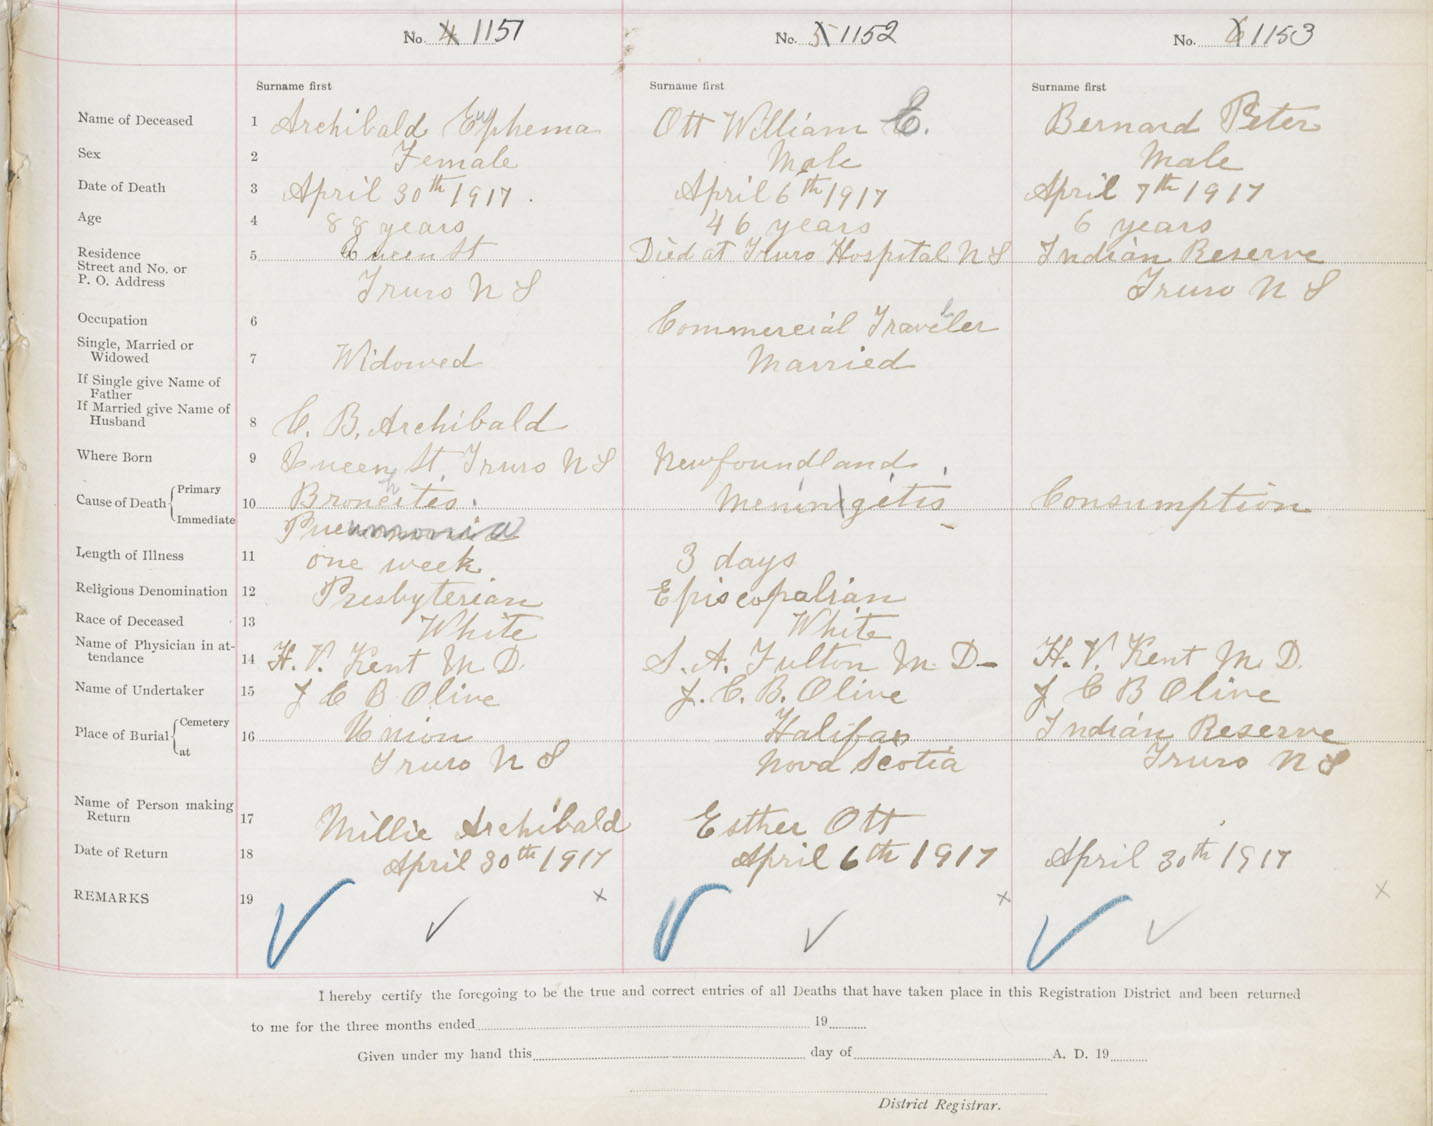 No. 4 1151 No. 5 1152 No. 6 1153
Surname first Surname first Surname first
Name of Deceased 1 Archibald Euphema Ott William C. Bernard Peter
Sex 2 Female Male Male
Date of Death 3 April 30th 1917. April 6th 1917 April 7th 1917
Age 4 88 years 46 years 6 years
Residence 5 Queen St Died at Truro Hospital N S Indian Reserve
Street and No. or
P. O. Address Truro N S Truro N S
Occupation 6 Commercial Traveller
Single, Married or
Widowed 7 Widowed Married
If Single give Name of
Father
If Married give Name of
Husband 8 C. B. Archibald
Where Born 9 Queen St Truro N S Newfoundland
Cause of Death Primary 10 Bronchitis. Meningitis Consumption
Immediate Pneumonia
Length of Illness 11 one week 3 days
Religious Denomination 12 Presbyterian Episcopalian
Race of Deceased 13 White White
Name of Physician in at-
tendance 14 H. V. Kent M D. S. A. Fulton M. D- H. V. Kent M. D.
Name of Undertaker 15 J C B Olive J. C. B. Olive J C B Olive
Place of Burial Cemetery 16 Union Halifax Indian Reserve
at Truro N S Nova Scotia Truro N S
Name of Person making
Return 17 Millie Archibald Esther Ott
Date of Return 18 April 30th 1917 April 6th 1917 April 30th 1917
REMARKS 19
I hereby certify the foregoing to be the true and correct entries of all Deaths that have taken place in this Registration District and been returned
to me for the three months ended 19
Given under my hand this day of A. D. 19
District Registrar.